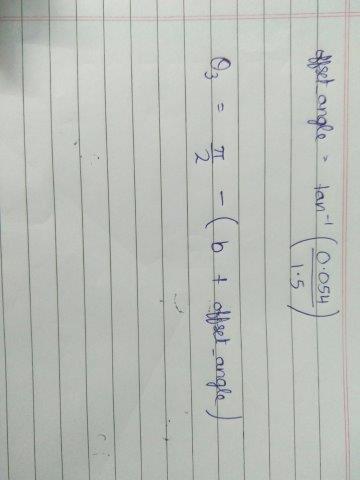 offset_angle = tan⁻¹ (0.054/1.5)
θ₃ = π/2 - (b + offset_angle)